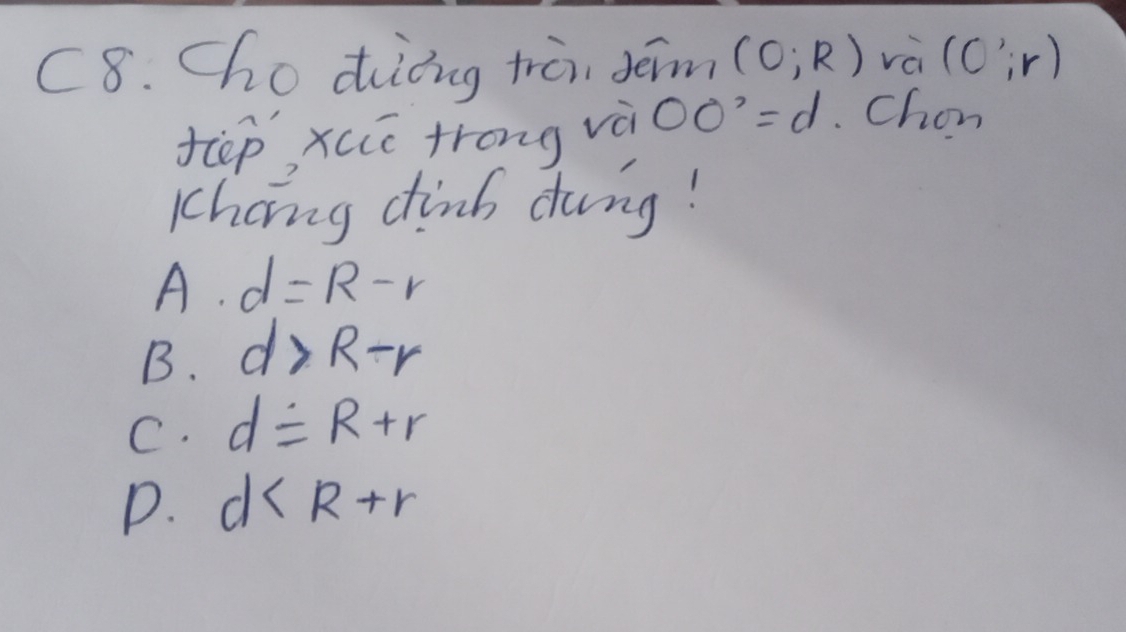 C8. Cho đường tròn tâm (O;R) và (O';r)
tiếp xúc trong và OO'=d. Chọn
khẳng định đúng!
A. d=R-r
B. d>R-r
C. d=R+r
D. d<R+r